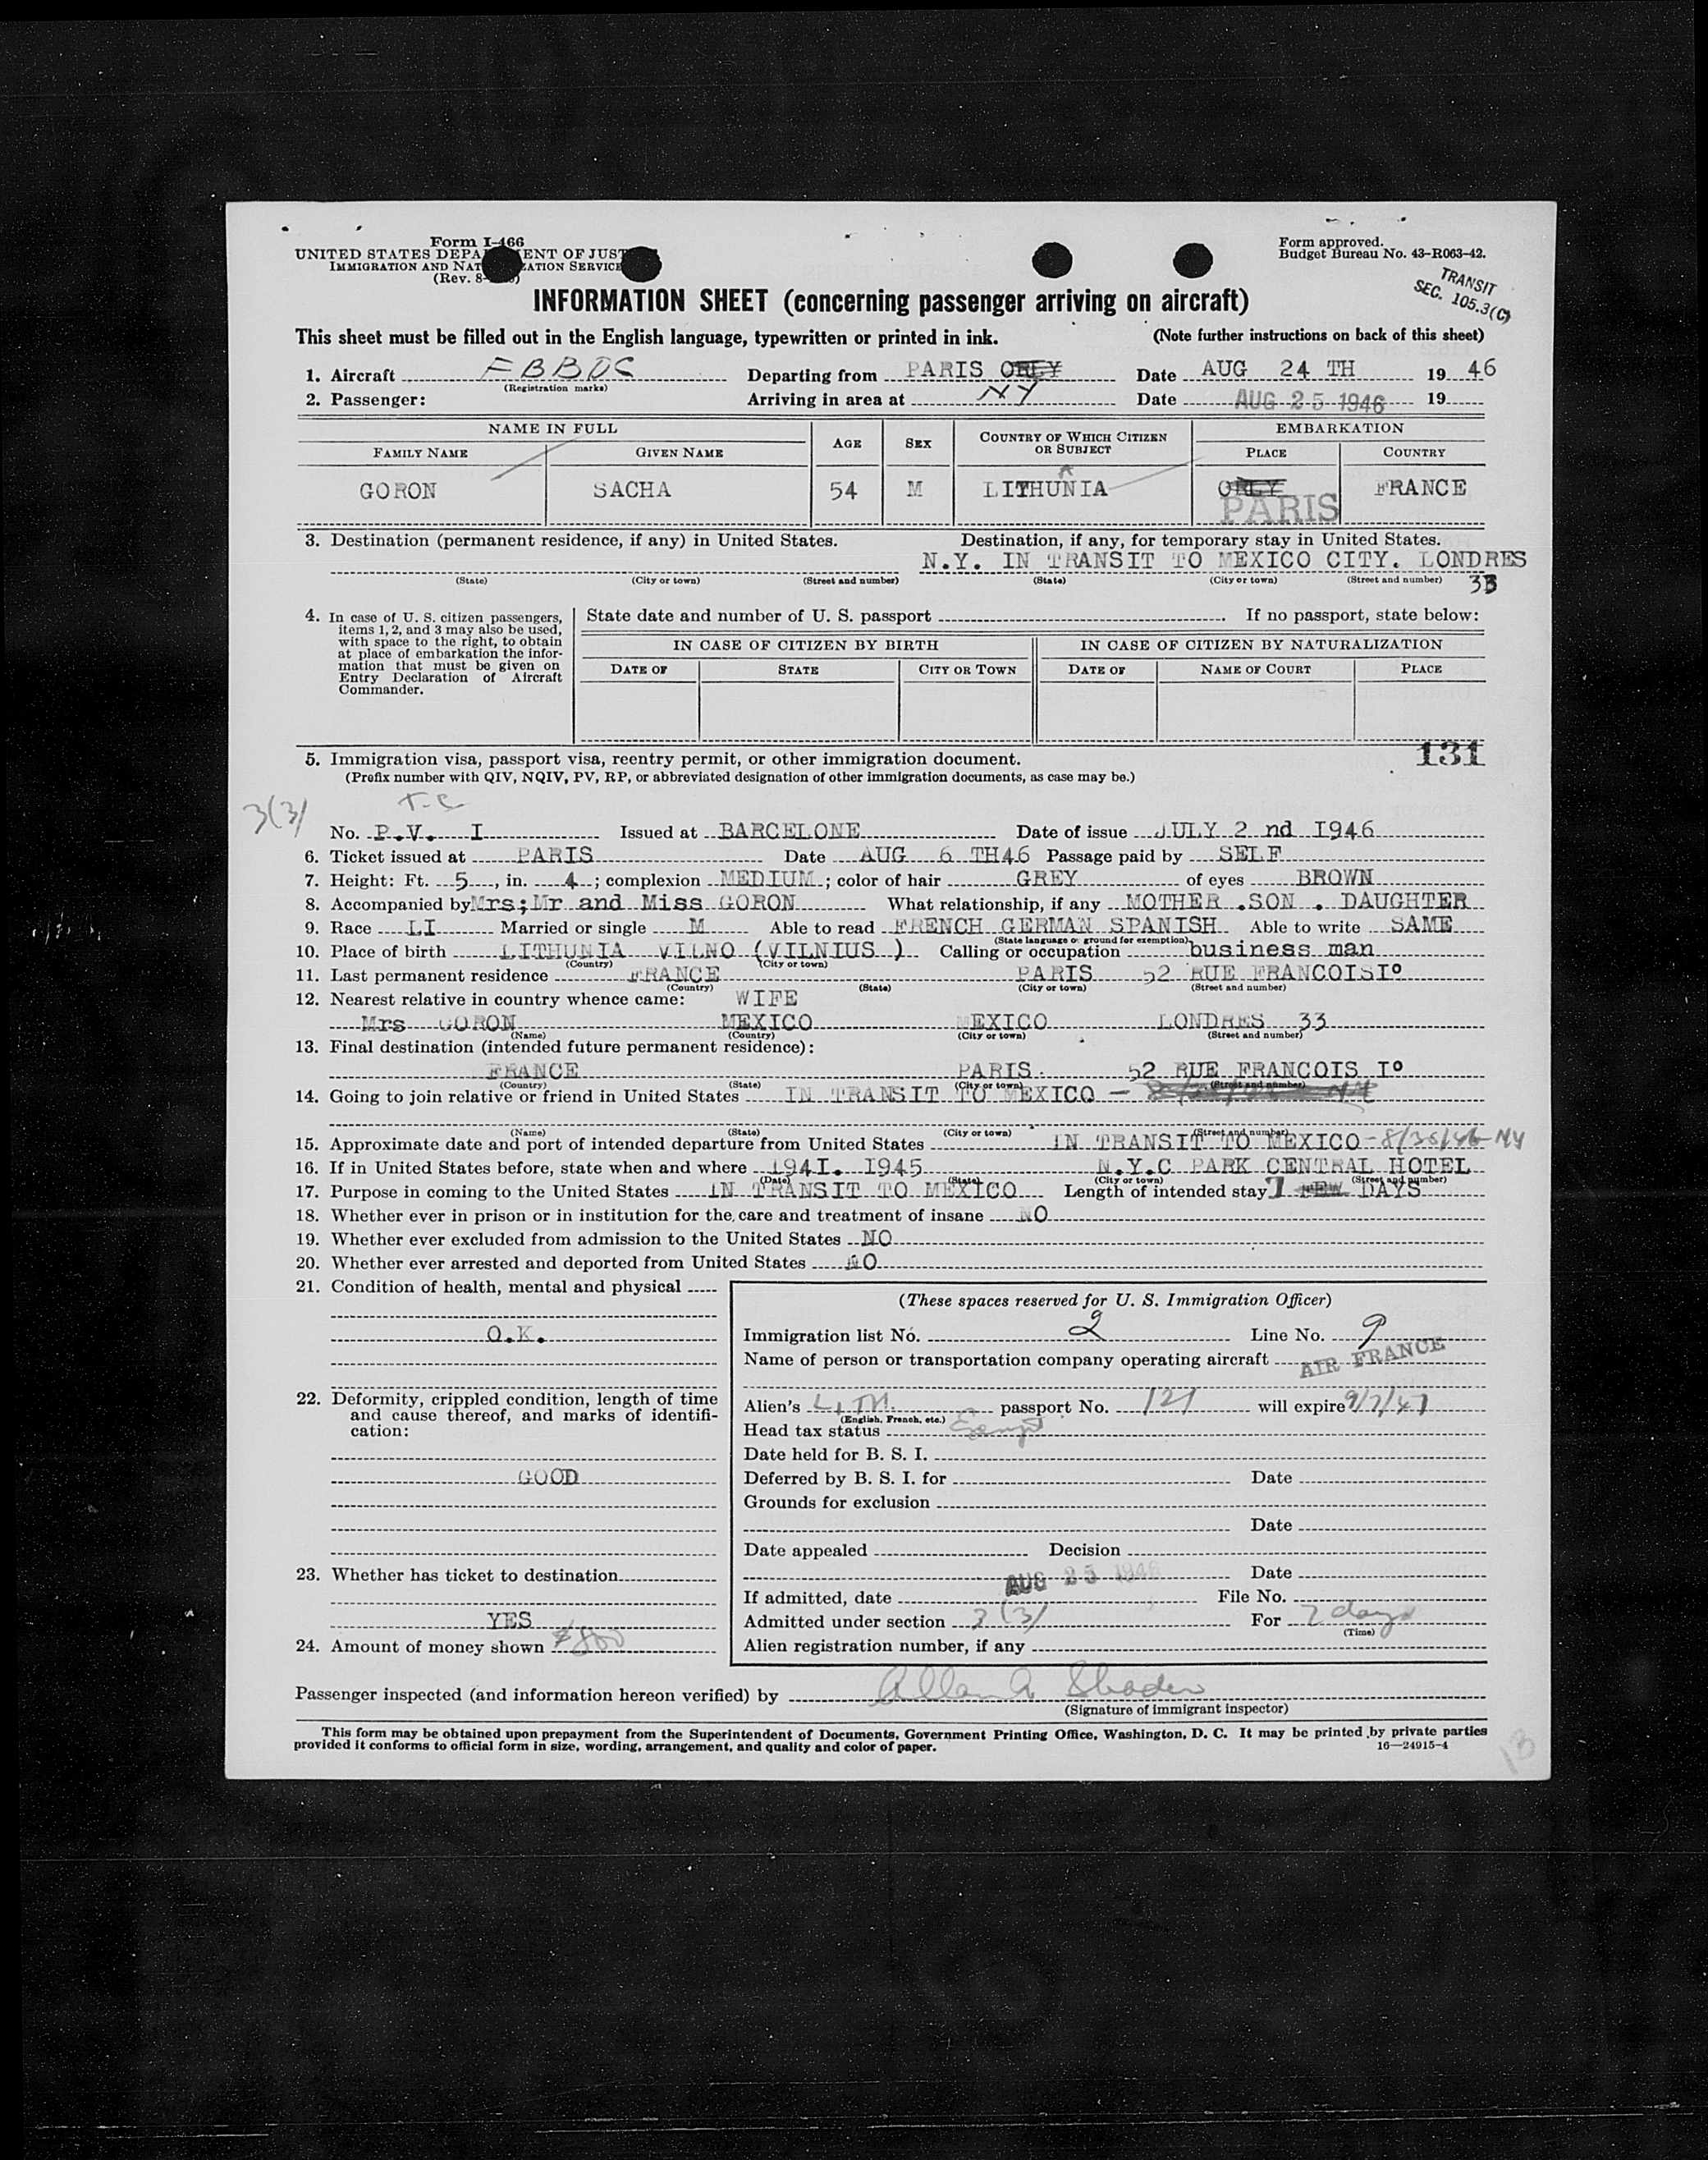 Form I-466
UNITED STATES DEPA ENT OF JUST
IMMIGRATION AND NAT ZATION SERVICE
(Rev. 8- )
Form approved.
Budget Bureau No. 43-R063-42.
TRANSIT
SEC. 105.3(C)
INFORMATION SHEET (concerning passenger arriving on aircraft)
This sheet must be filled out in the English language, typewritten or printed in ink. (Note further instructions on back of this sheet)
1. Aircraft FBBDC Departing from PARIS ORLY Date AUG 24 TH 19 46
(Registration marks)
2. Passenger: Arriving in area at NY Date AUG 25 1946 19
NAME IN FULL AGE SEX COUNTRY OF WHICH CITIZEN OR SUBJECT EMBARKATION
FAMILY NAME GIVEN NAME PLACE COUNTRY
GORON SACHA 54 M LITHUNIA ORLY FRANCE
A
PARIS
3. Destination (permanent residence, if any) in United States. Destination, if any, for temporary stay in United States.
N.Y. IN TRANSIT TO MEXICO CITY. LONDRES
(State) (City or town) (Street and number) (State) (City or town) (Street and number) 33
4. In case of U. S. citizen passengers, items 1, 2, and 3 may also be used, with space to the right, to obtain at place of embarkation the information that must be given on Entry Declaration of Aircraft Commander.
State date and number of U. S. passport If no passport, state below:
IN CASE OF CITIZEN BY BIRTH IN CASE OF CITIZEN BY NATURALIZATION
DATE OF STATE CITY OR TOWN DATE OF NAME OF COURT PLACE
131
5. Immigration visa, passport visa, reentry permit, or other immigration document.
(Prefix number with QIV, NQIV, PV, RP, or abbreviated designation of other immigration documents, as case may be.)
3(3) T.C
No. P.V. I Issued at BARCELONE Date of issue JULY 2 nd I946
6. Ticket issued at PARIS Date AUG 6 TH46 Passage paid by SELF
7. Height: Ft. 5, in. 4; complexion MEDIUM; color of hair GREY of eyes BROWN
8. Accompanied by Mrs;Mr and Miss GORON What relationship, if any MOTHER .SON . DAUGHTER
9. Race LI Married or single M Able to read FRENCH GERMAN SPANISH Able to write SAME
(State language or ground for exemption)
10. Place of birth LITHUNIA VILNO (VILNIUS ) Calling or occupation business man
(Country) (City or town)
11. Last permanent residence FRANCE PARIS 52 RUE FRANCOISI°
(Country) (State) (City or town) (Street and number)
12. Nearest relative in country whence came: WIFE
Mrs GORON MEXICO MEXICO LONDRES 33
(Name) (Country) (City or town) (Street and number)
13. Final destination (intended future permanent residence):
FRANCE PARIS. 52 RUE FRANCOIS I°
(Country) (State) (City or town) (Street and number)
14. Going to join relative or friend in United States IN TRANSIT TO MEXICO -
(Name) (State) (City or town) (Street and number)
15. Approximate date and port of intended departure from United States IN TRANSIT TO MEXICO - 8/30/46 NY
16. If in United States before, state when and where 194I. I945 N.Y.C PARK CENTRAL HOTEL
(Date) (State) (City or town) (Street and number)
17. Purpose in coming to the United States IN TRANSIT TO MEXICO Length of intended stay 7 FEW DAYS
18. Whether ever in prison or in institution for the care and treatment of insane NO
19. Whether ever excluded from admission to the United States NO
20. Whether ever arrested and deported from United States NO
21. Condition of health, mental and physical
O.K.
22. Deformity, crippled condition, length of time and cause thereof, and marks of identification:
GOOD
23. Whether has ticket to destination
YES
24. Amount of money shown $800
(These spaces reserved for U. S. Immigration Officer)
Immigration list No. 2 Line No. 9
Name of person or transportation company operating aircraft AIR FRANCE
Alien's Lith. passport No. 121 will expire 9/7/47
(English, French, etc.)
Head tax status Exempt
Date held for B. S. I.
Deferred by B. S. I. for Date
Grounds for exclusion
Date
Date appealed Decision
Date
If admitted, date AUG 25 1946 File No.
Admitted under section 3(3) For 7 days
(Time)
Alien registration number, if any
Passenger inspected (and information hereon verified) by Allan A
(Signature of immigrant inspector)
This form may be obtained upon prepayment from the Superintendent of Documents, Government Printing Office, Washington, D. C. It may be printed by private parties
provided it conforms to official form in size, wording, arrangement, and quality and color of paper. 16—24915-4
13